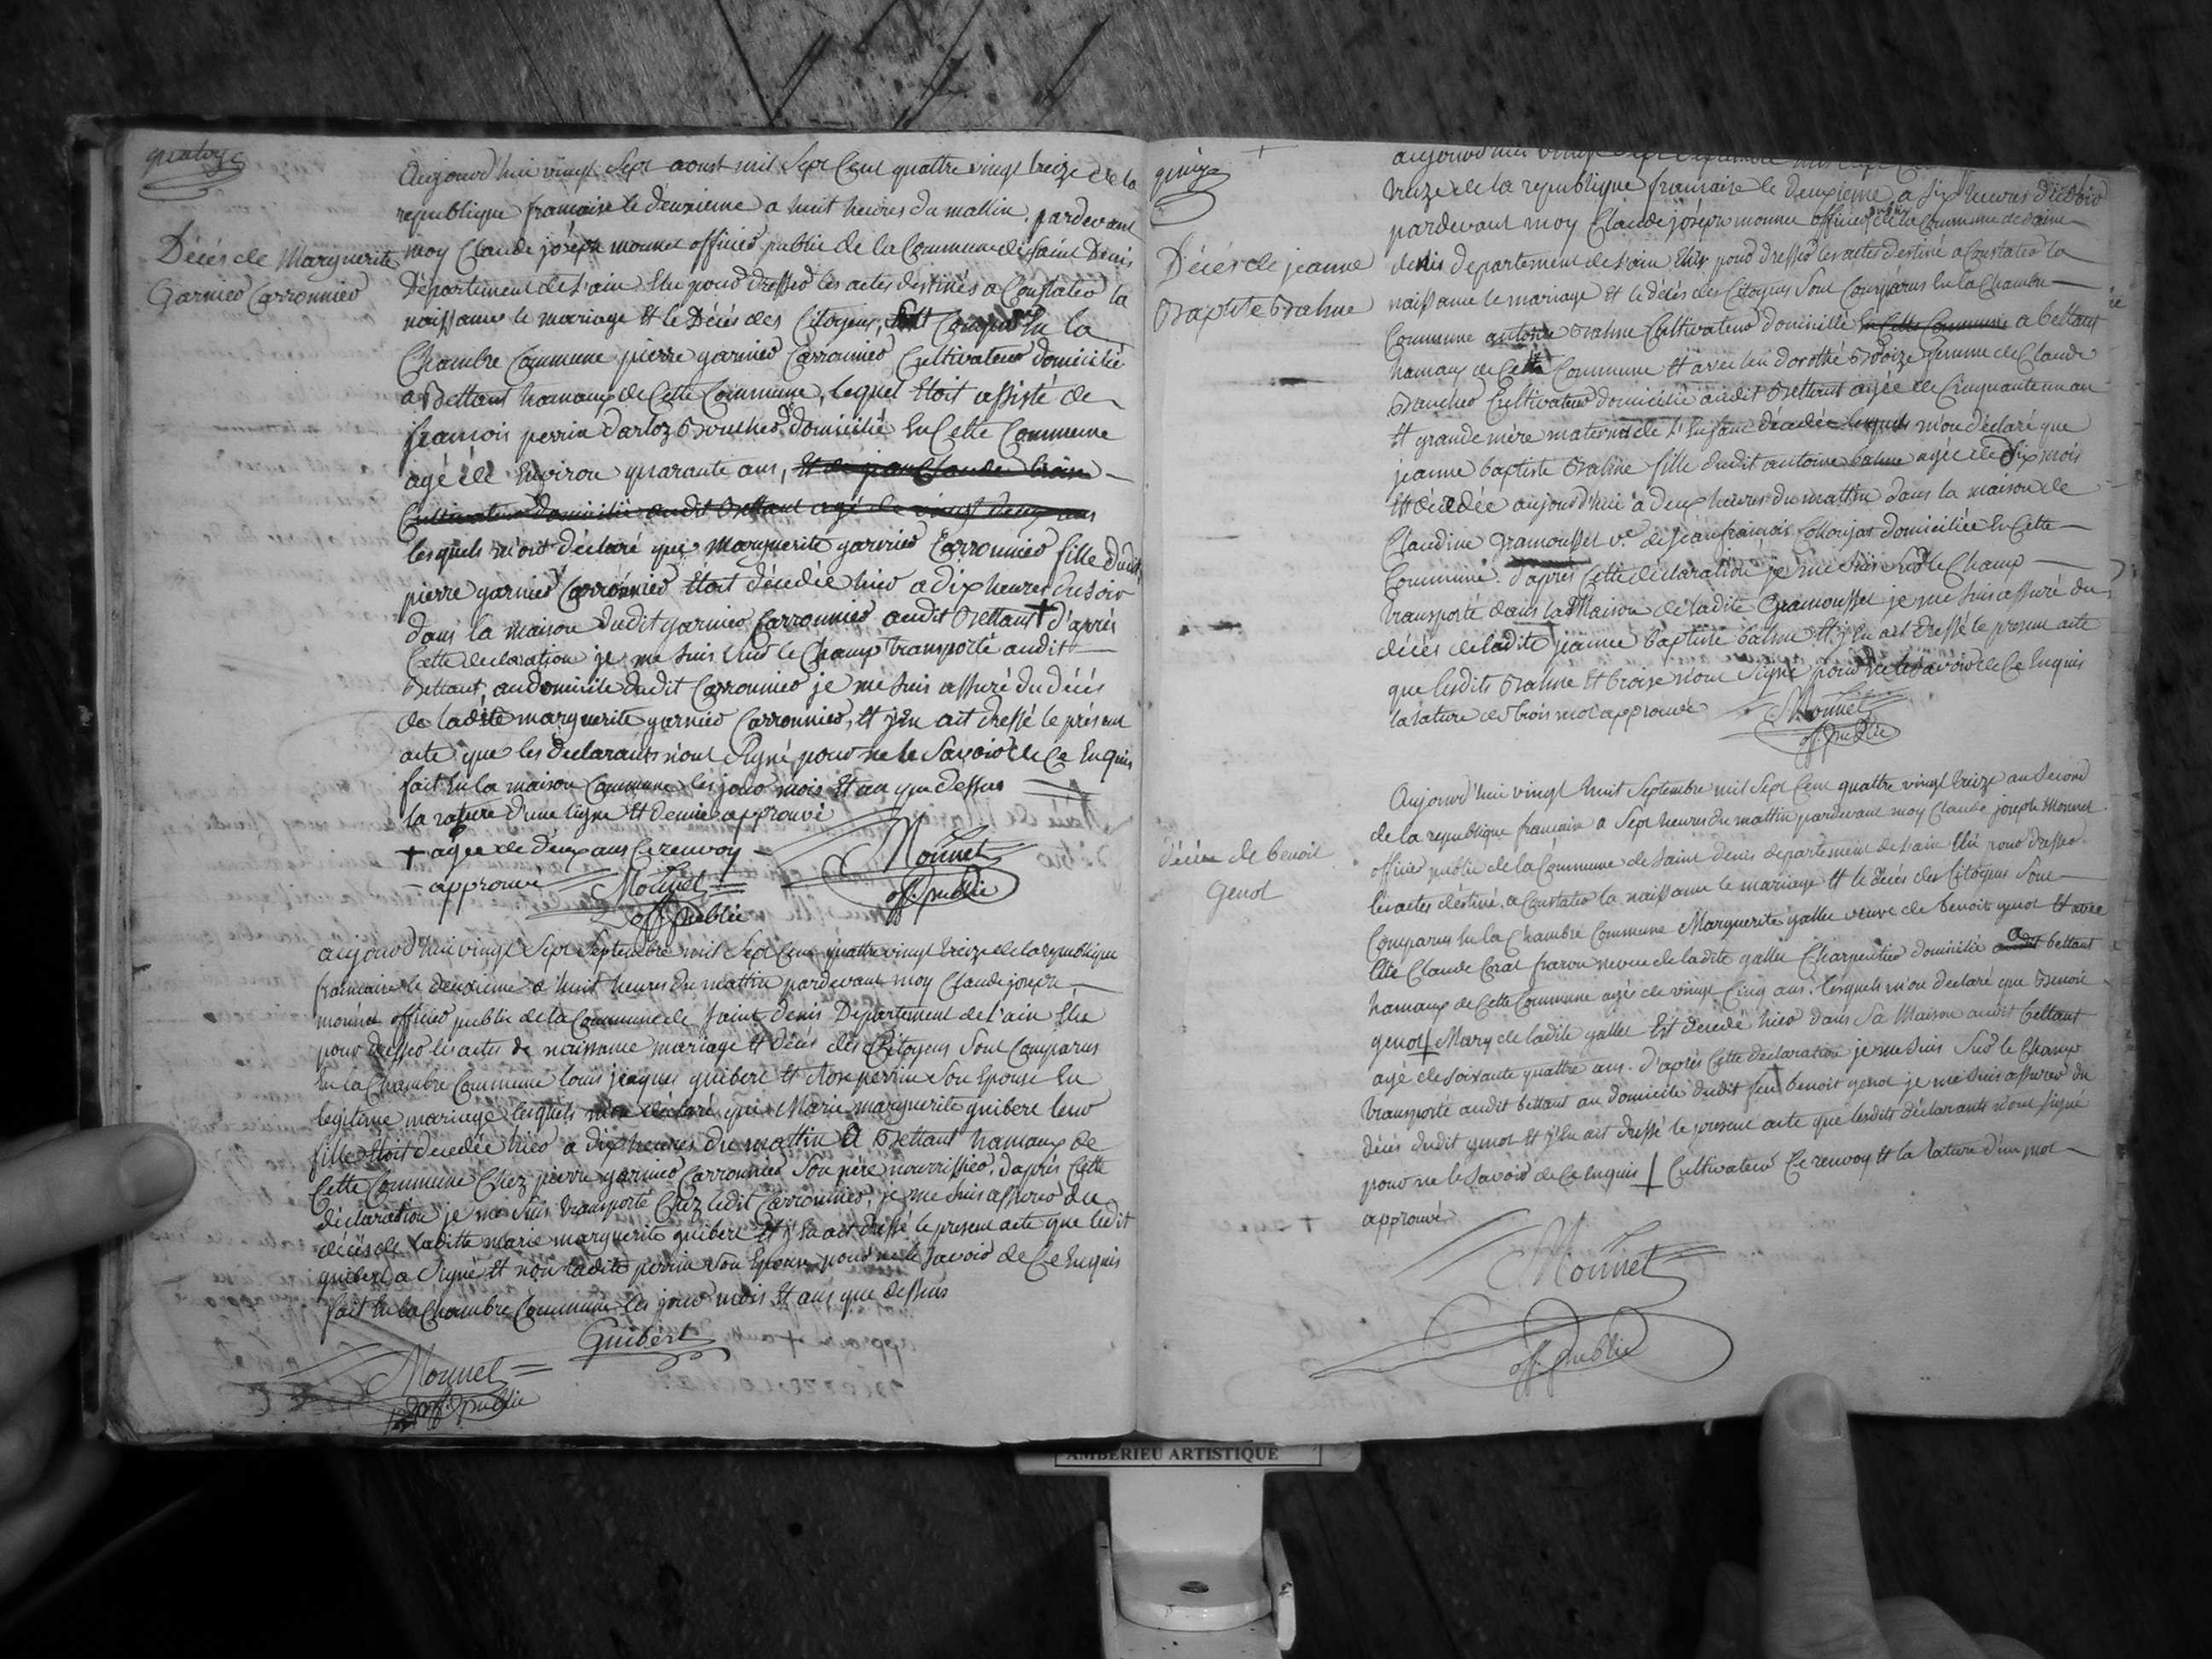 quatorze
Décès de Marguerite
Garnier Carronnier
Aujourd'hui vingt Sept aoust mil Sept Cent quattre vingt treize de la
republique francaise le deuxieme a huit heures du mattin, pardevant
moy Claude joséph monnet officier public de la Commune de Saint Denis
Département de l'ain Elu pour dresser les actes destinés a Constater la
naissance le mariage Et le Décés des Citoyens, Est Comparu En la
Chambre Commune pierre garnier Carronnier Cultivateur domicilié
a Bettant hamaux de Cette Commune, lequel Etoit assisté de
francois perrin darloz Boucher domicilié En Cette Commune
agé de Environ quarante ans, Et de jean Claude
Cultivateur domicilié audit Bettant agé de vingt deux ans
lesquels m'ont déclaré que Marguerite garnier Carronnier fille dudit
pierre garnier Carronnier Etoit décédée hier a dix heures du soir
dans la maison dudit garnier Carronnier audit Bettant + d'aprés
Cette declaration je me suis Sur le Champ transporté audit
Bettant, au domicile dudit Carronnier je me suis assuré du décés
de ladite marguerite garnier Carronnier, Et j'En ait dressé le présent
acte que les declarants n'ont Signé pour ne le Savoir de Ce Enquis
fait En la maison Commune les jour mois Et an que dessus
la rature d'une ligne Et demie approuvé
+ agée de deux ans Ce renvoy
approuvé
Monnet
off. public
Monnet
off. public
aujourd'hui vingt Sept Septembre mil Sept Cent quattre vingt treize de la republique
francaise le deuxieme a huit heures du mattin pardevant moy Claude joseph
monnet officier public de la Commune de Saint Denis Département de l'ain Elu
pour dresser les actes de naissance mariage Et décés des Citoyens Sont Comparus
En la Chambre Commune louis jacques guibert Et perrin Son Epouse En
legitime mariage lesquels m'ont déclaré que Marie marguerite guibert leur
fille Etoit decedée hier a dix heures du mattin a Bettant hamaux de
Cette Commune Chez pierre garnier Carronnier Son pére nourrissier, d'aprés Cette
déclaration je me Suis transporté Chez ledit Carronnier, je me suis assurer du
décés de laditte marie marguerite guibert Et j'En ait dressé le present acte que ledit
guibert a Signé Et non ladite perrin Son Epouse pour ne le Savoir de Ce Enquis
fait En la Chambre Commune les jour mois Et ans que dessus
Guibert
Monnet
off. public
quinze
Décès de jeanne
Baptiste Balme
aujourd'hui vingt Sept Septembre mil Sept
treize de la republique francaise le deuxieme, a Six heures du Soir
pardevant moy Claude joséph monnet officier public de la Commune de Saint
denis departement de l'ain Elu pour dresser les actes destiné a Constater la
naissance le mariage Et le décés des Citoyens Sont Comparus En la Chambre
Commune antoine Balme Cultivateur domicilié En Cette Commune a bettant
hamaux de Cette Commune Et avec lui dorothé Broize femme de Claude
Brancher Cultivateur domicilié audit Bettant agée de Cinquante un an
Et grande mére maternelle de l'Enfant décédée lesquels m'on déclaré que
jeanne baptiste Balme fille dudit antoine balme agée de dix mois
Et décédée aujourd'hui a deux heures du mattin dans la maison de
Claudine Gramousset v.e de jean francois domiciliée En Cette
Commune. d'aprés Cette declaration je me Suis Sur le Champ
transporté dans la Maison de ladite Gramousset je me suis assuré du
décés de ladite jeanne baptiste balme Et j'En ait dressé le present acte
que lesdits Balme Et broize n'ont Signé pour ne le Savoir de Ce Enquis
la rature des trois mot approuvé
Monnet
off public
décès de benoit
Genod
Aujourd'hui vingt huit Septembre mil Sept Cent quattre vingt treize an Second
de la republique francaise a Sept heures du mattin pardevant moy Claude joseph Monnet
officier public de la Commune de Saint denis departement de l'ain Elu pour dresser
les actes déstiné a Constater la naissance le mariage Et le décés des Citoyens Sont
Comparus En la Chambre Commune Marguerite gallet veuve de benoit genod Et avec
Elle Claude neveu de ladite gallet Charpentier domicilié audit a bettant
hamaux de Cette Commune agés de vingt Cinq ans, lesquels m'on déclaré que Benoit
genod + Mary de ladite gallet Est decedé hier dans Sa Maison audit bettant
agé de soixante quattre ans. d'aprés Cette declaration je me Suis Sur le Champ
transporté audit bettant au domicile dudit feu benoit genod je me suis assurer du
décés dudit genod Et j'En ait dressé le present acte que lesdits déclarants n'ont Signé
pour ne le Savoir de Ce Enquis + Cultivateur Ce renvoy Et la rature d'un mot
approuvé
Monnet
off. public
AMBERIEU ARTISTIQUE